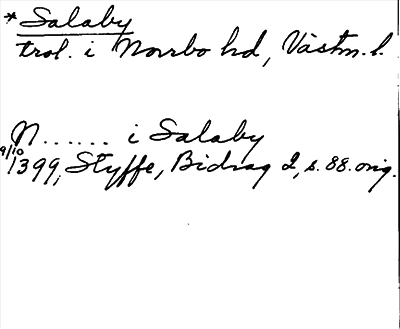 * Salaby
trol. i Norrbo hd, Västm. l.
N...... i Salaby
9/10 1399, Styffe, Bidrag 2, s. 88. orig.